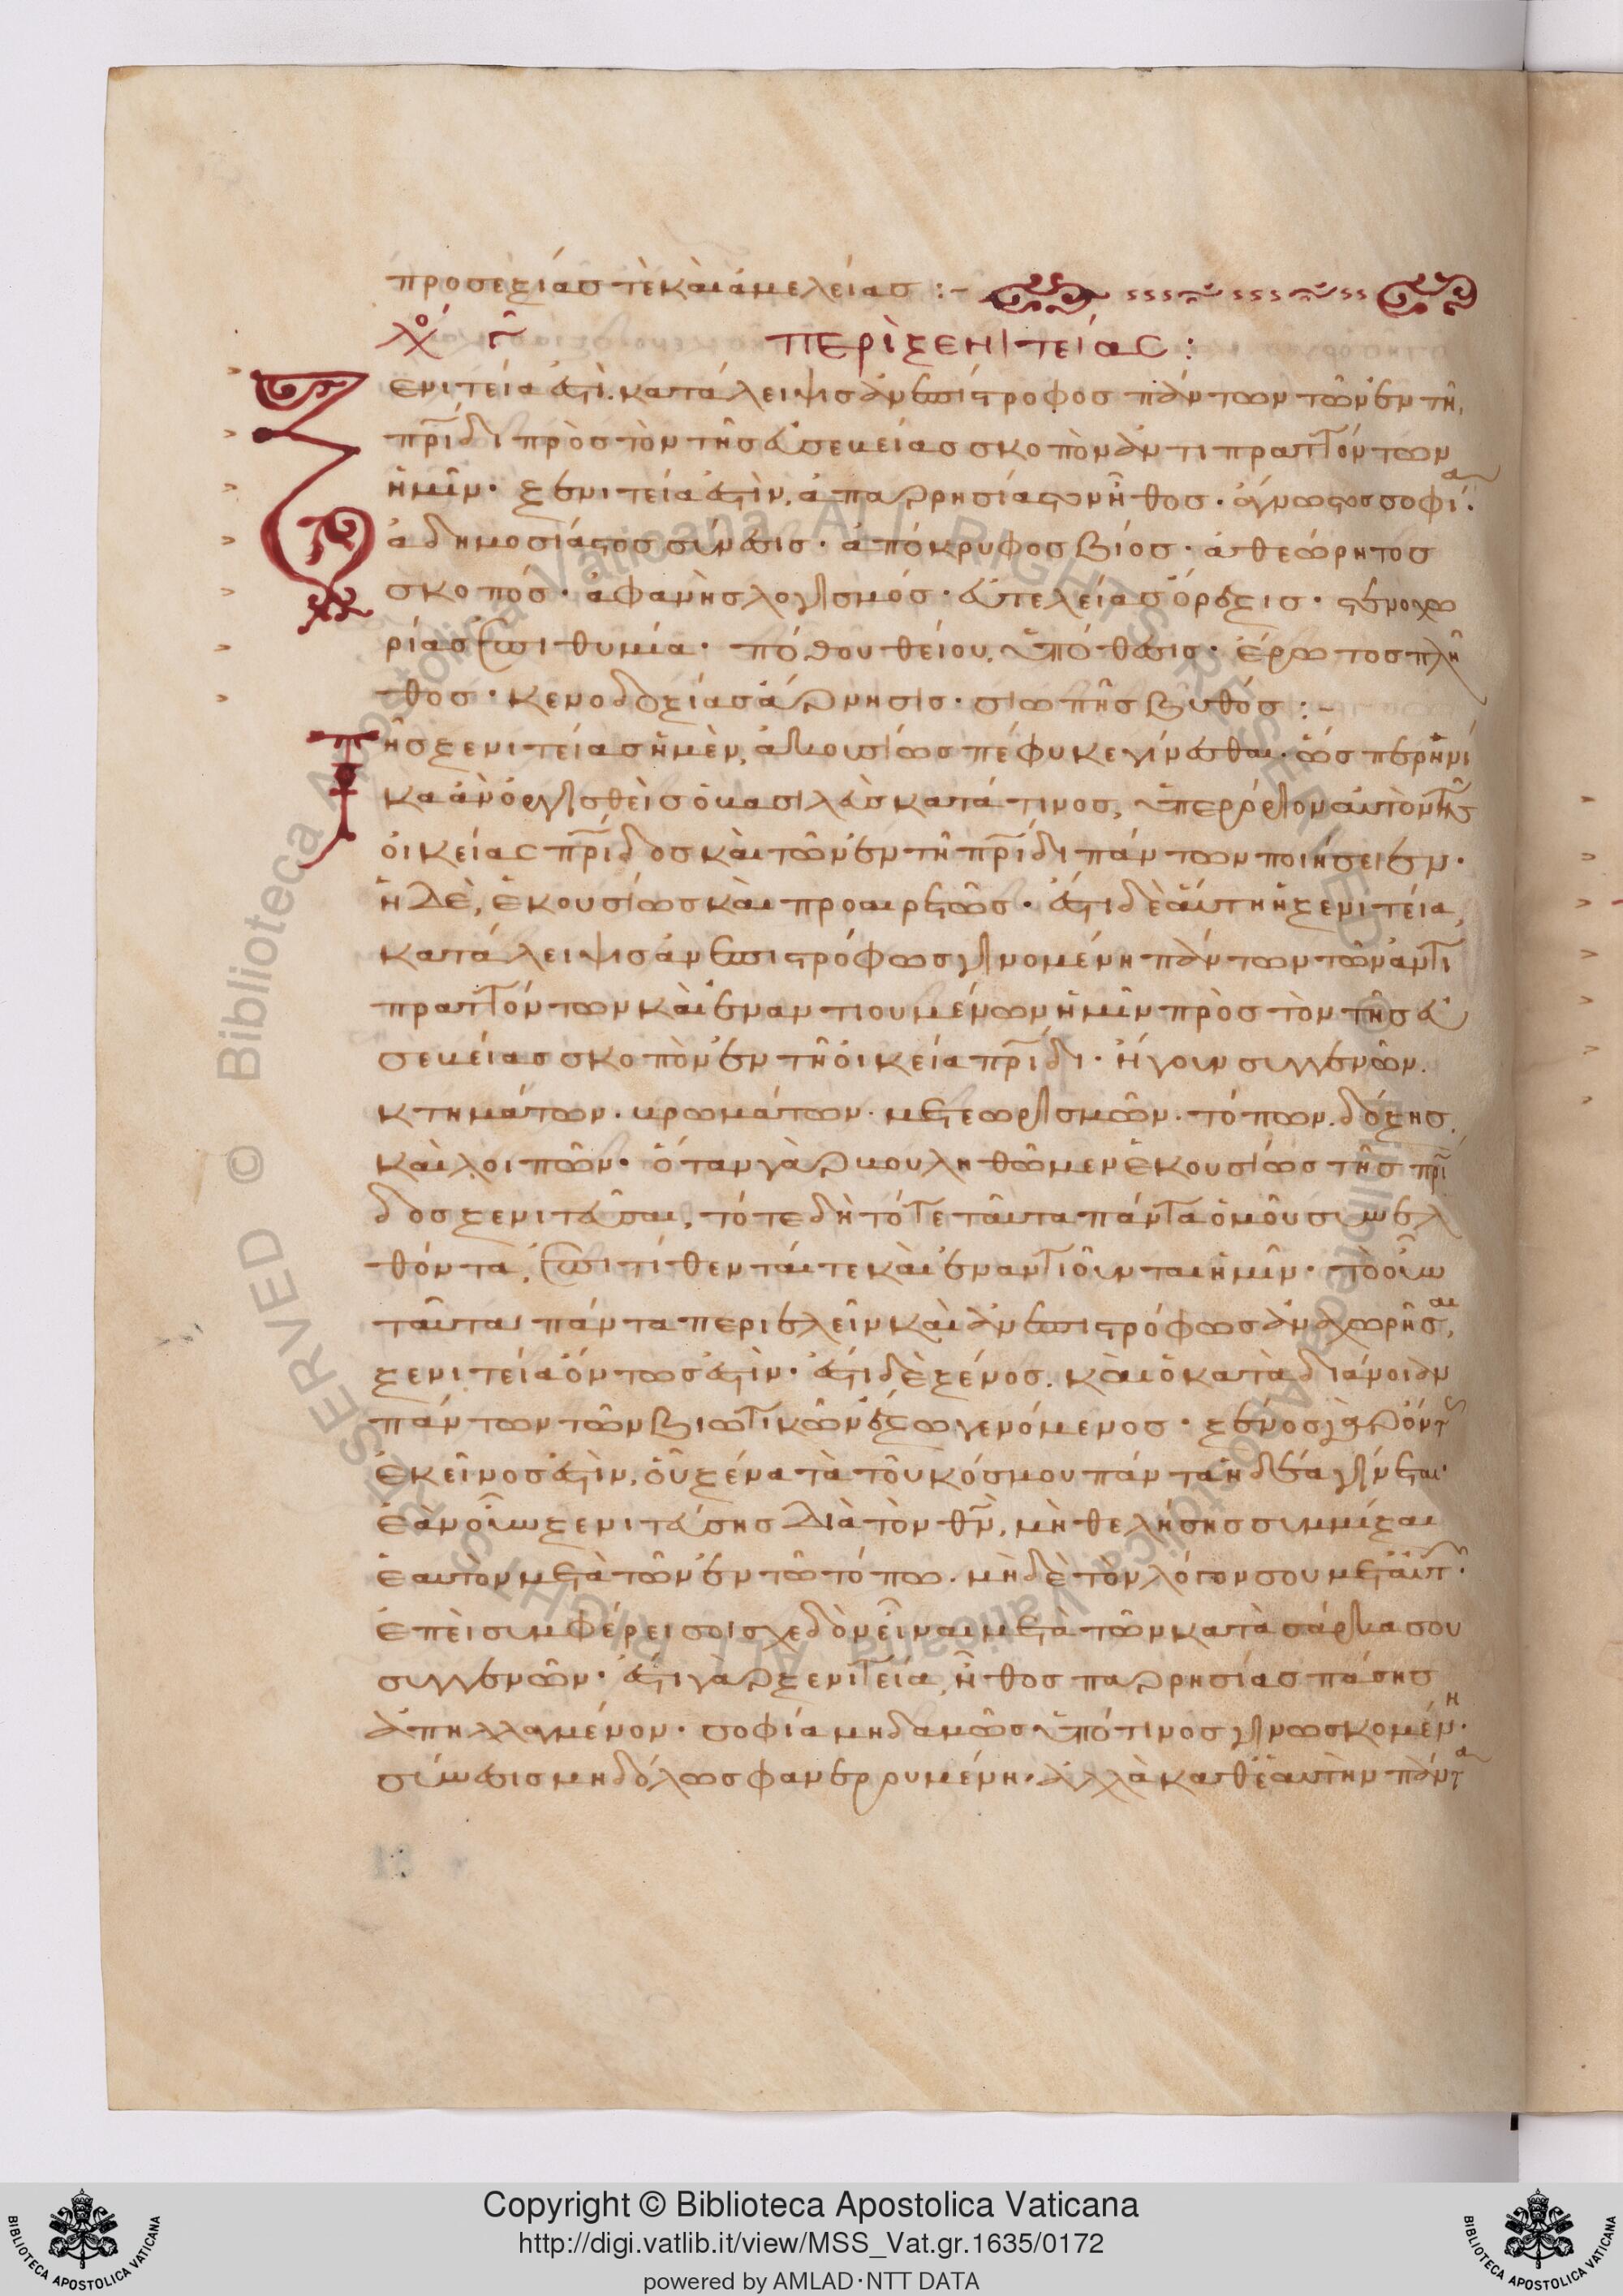 προσεξίας τὲ καὶ ἀμελείας :-
Λόγος γ̄ περὶ ξενιτείας :
Ξενιτεία ἐστὶ. κατάλειψις ἀνεπίστροφος πάντων τῶν ἐν τῆ,
πρ̅ίδι πρὸς τὸν τῆς εὐσεβείας σκοπὸν ἀντιπραττόντων
ἡμῖν· ξενιτεία ἐστὶν, ἀπαρρησίαστον ἦθος· ἄγνωστος σοφία·
ἀδημοσίαστος σύνεσις· ἀπόκρυφος βίος· ἀθεώρητος
σκοπός· ἀφανὴς λογισμός· εὐτελείας ὄρεξις· στενοχω
ρίας ἐπιθυμία· πόθου θείου, ὑπόθεσις· ἔρωτος πλῆ
θος· κενοδοξίας ἄρνησις· σιωπῆς βυθός :-
Τῆς ξενιτείας ἡ μὲν, ἀκουσίως πέφυκε γίνεσθαι· ὥσπερ ἡνί
κα ἂν ὀργισθεὶς ὁ βασιλεὺς κατά τινος, ὑπερόριον αὐτὸν τῆς
οἰκείας πρ̅ίδος καὶ τῶν ἐν τῆ πρ̅ίδι πάντων ποιήσειεν·
ἡ δὲ, ἑκουσίως καὶ προαιρετῶς· ἔστι δὲ αὕτη ἡ ξενιτεία,
κατάλειψις ἀνεπιστρόφως γινομένη πάντων τῶν ἀντι
πραττόντων καὶ ἐναντιουμένων ἡμῖν πρὸς τὸν τῆς εὐ
σεβείας σκοπὸν ἐν τῆ οἰκεία πρ̅ίδι· ἤγουν συγγενῶν.
κτημάτων. βρωμάτων. μετεωρισμῶν. τόπων. δόξης.
καὶ λοιπῶν· ὅταν γὰρ βουληθῶμεν ἑκουσίως τῆς πρ̅ι
δος ξενιτεῦσαι, τότε δὴ τότε ταῦτα πάντα ὁμοῦ συνελ
θόντα, ἐπιτίθενταί τε καὶ ἐναντιοῦνται ἡμῖν· τὸ οὖν
ταῦτα πάντα περιελεῖν καὶ ἀνεπιστρόφως ἀναχωρῆσαι,
ξενιτεία ὄντως ἐστὶν· ἔστι δὲ ξένος. καὶ ὁ κατὰ διάνοιαν
πάντων τῶν βιωτικῶν ἔξω γενόμενος· ξένος γὰρ ὄντως
ἐκεῖνος ἐστὶν, οὗ ξένα τὰ τοῦ κόσμου πάντα ἡδέα γίνεται·
ἐὰν οὖν ξενιτεύσης διὰ τὸν θν̅, μὴ θελήσης συμμίξαι
ἑαυτὸν μετὰ τῶν ἐν τῶ τόπω. μὴ δὲ τὸν λόγον σου μετ' αὐτῶν·
ἐπεὶ συμφέρει σοι σχεδὸν εἶναι μετὰ τῶν κατὰ σάρκα σου
συγγενῶν· ἔστι γὰρ ξενιτεία, ἦθος παρρησίας πάσης
ἀπηλλαγμένον· σοφία μηδαμῶς ὑπό τινος γινωσκομένη·
σύνεσις μηδόλως φανερουμένη. ἀλλὰ καθ' ἑαυτὴν πάντα
Copyright © Biblioteca Apostolica Vaticana
http://digi.vatlib.it/view/MSS_Vat.gr.1635/0172
powered by AMLAD·NTT DATA
BIBLIOTECA APOSTOLICA VATICANA
BIBLIOTECA APOSTOLICA VATICANA